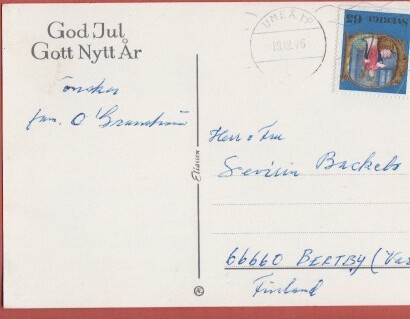 God Jul
Gott Nytt År
önskar
fam. O Granström
UMEÅ FP
19.12.76
SVERIGE 65
Eliasson
Herr o Fru
Sevirin Backels
66660 BERTBY (Vas
Finland